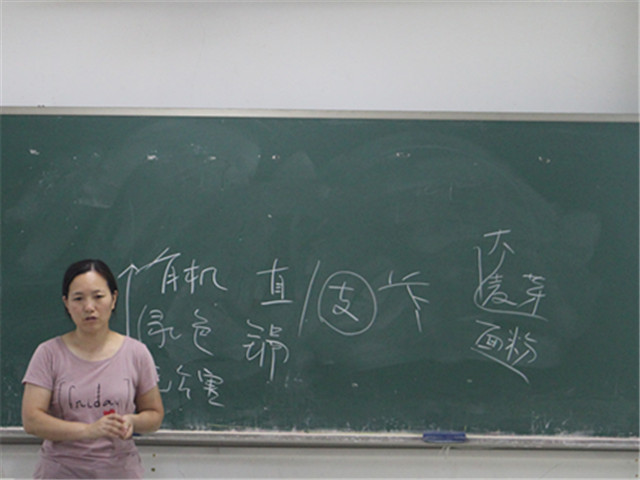 有机
绿色
公害
直
销
支
大
麦芽
面粉